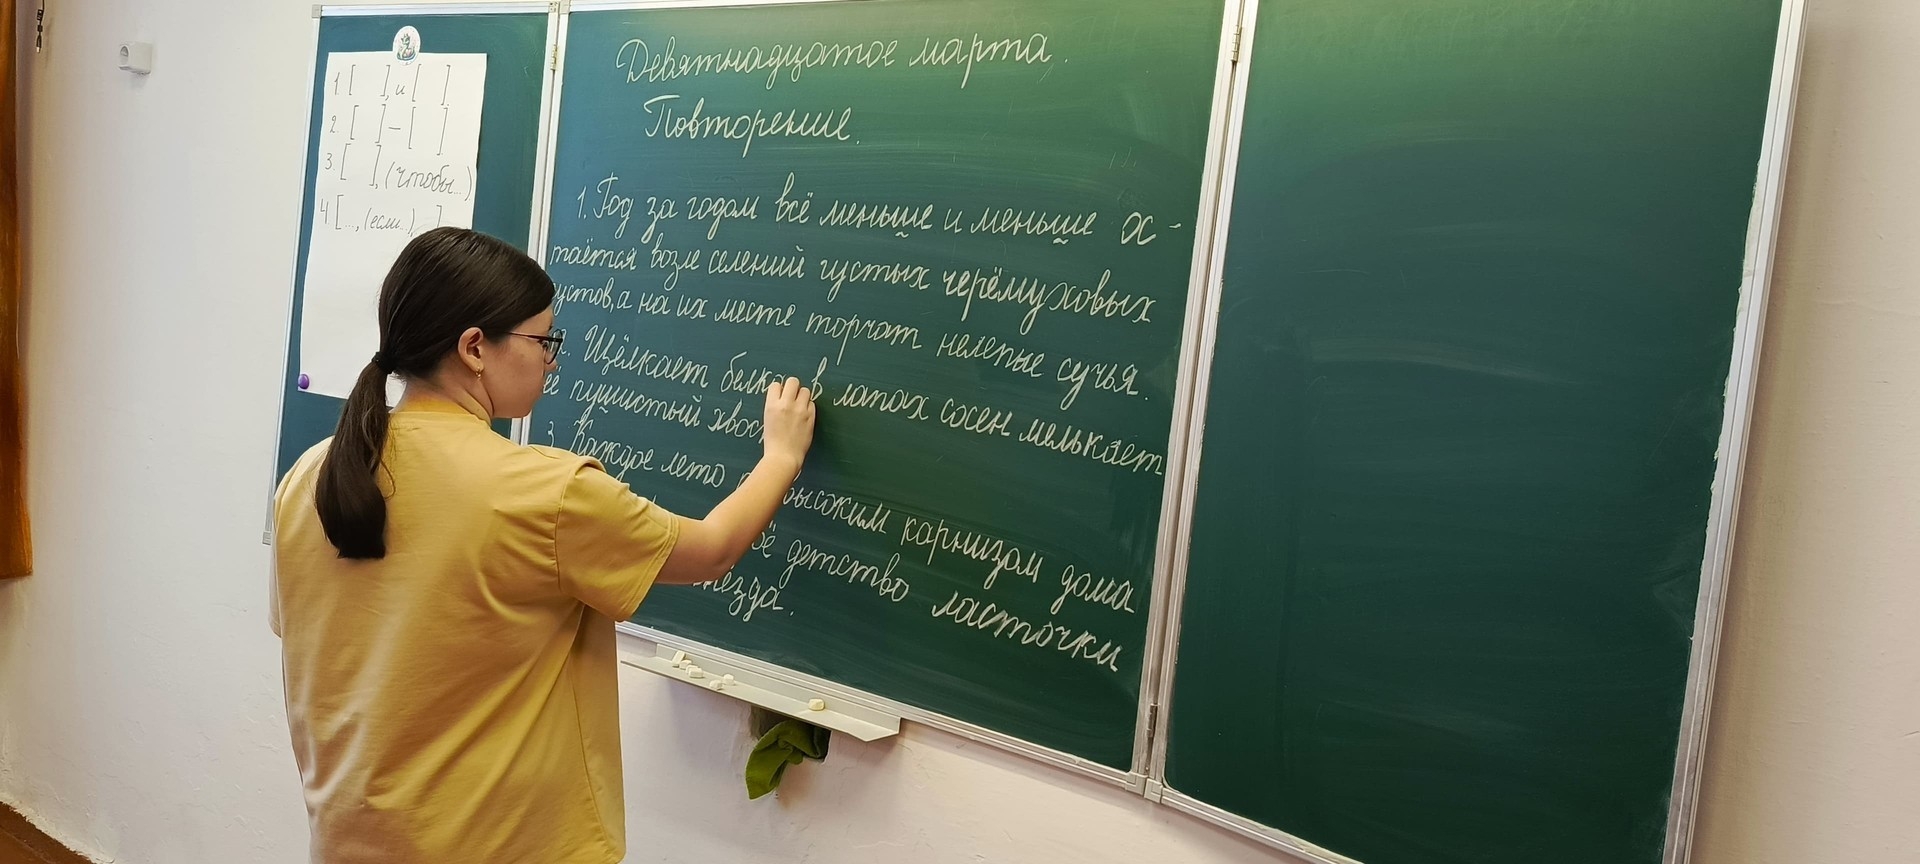 1. [ ], и [ ].
2. [ ] – [ ]
3. [ ], (чтобы...)
4 [..., (если..), ]
Девятнадцатое марта.
Повторение.
1. Год за годом всё меньше и меньше ос-
таётся возле селений густых черёмуховых
устов, а на их месте торчат нелепые сучья.
2. Щёлкает белка в лапах сосен мелькает
её пушистый хвос
3. Каждое лето высоким карнизом дома
детство ласточки
гнезда.